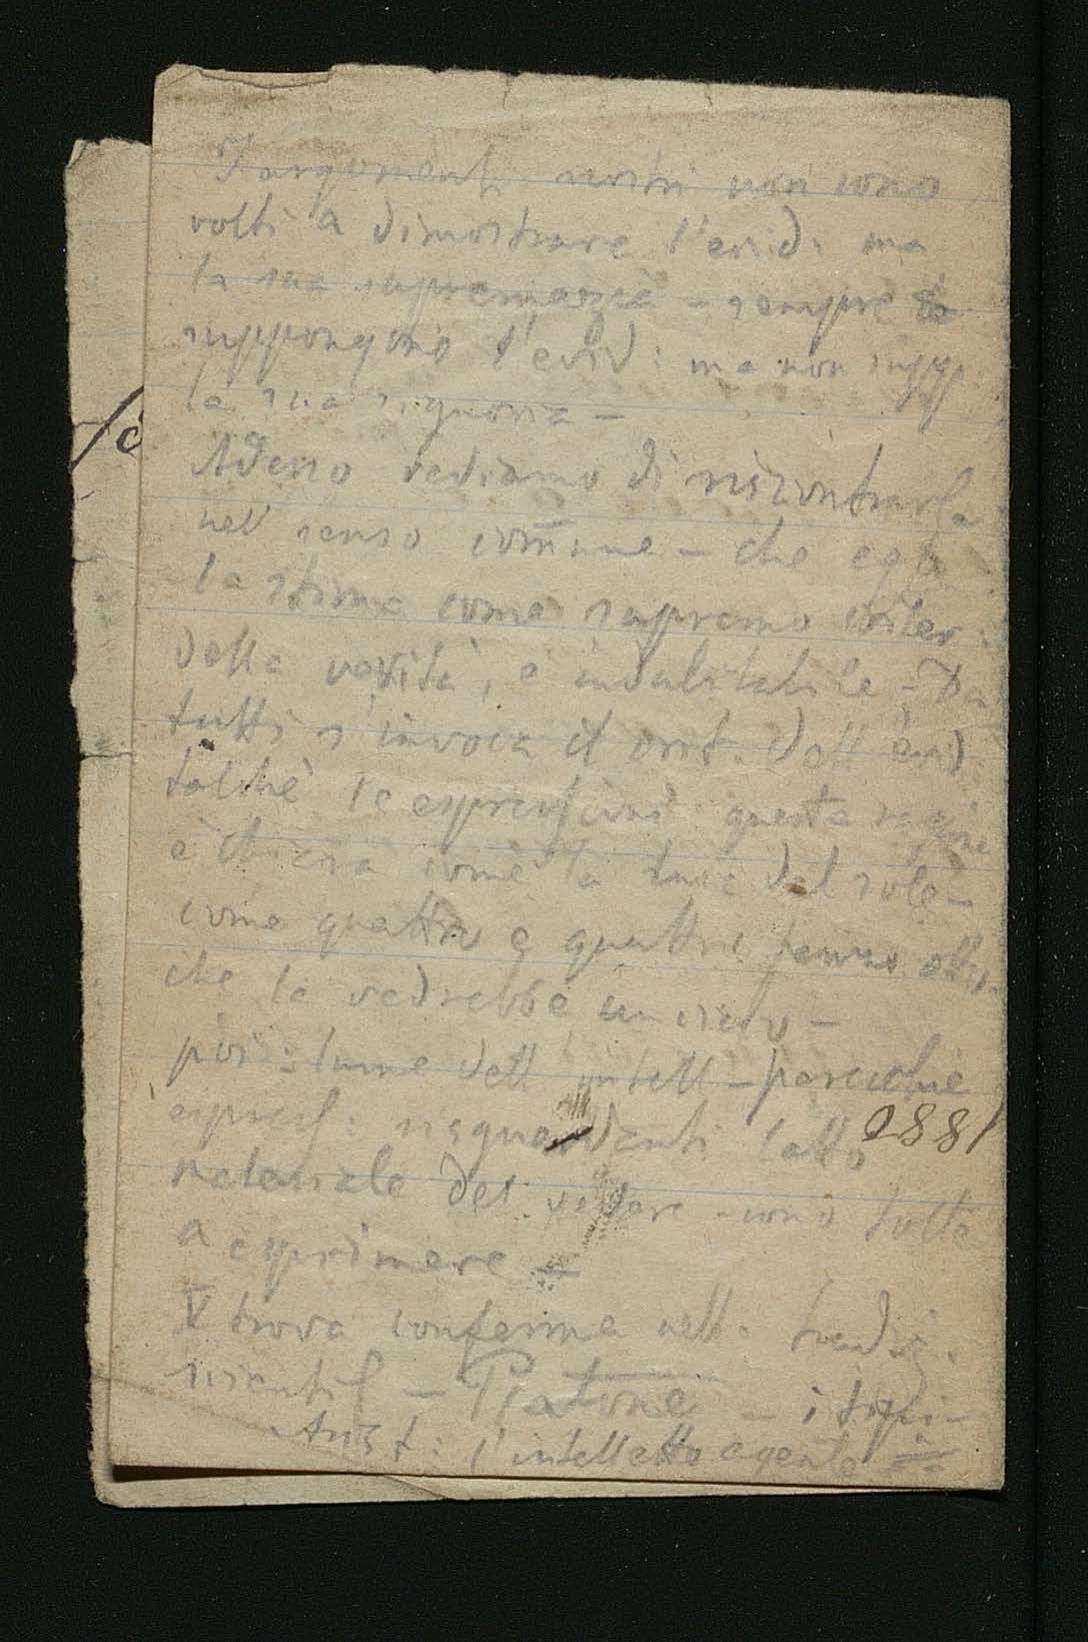 I argomenti nostri non sono
volti a dimostrare l'evid: ma
la sua supremazia - sempre
suppongono l'evid: ma non supp
la sua signoria -
Adesso vediamo di riscontrarla
nel senso comune - che egli
la stima come supremo criter:
della verità, è indubitabile - Da
tutti s'invoca il crit. dell'evid.
talchè le espressioni: questa ragione
è chiara come la luce del sole -
come quattro e quattro fanno otto.
che la vedrebbe un cieco -
poi: lume dell'intell - parecchie
espress: risguardanti l'atto
2881
materiale del vedere - sono tolte
a esprimere -
V trova conferma nell: tradiz.
scientif - Platone - i tipi -
Arist: l'intelletto agente